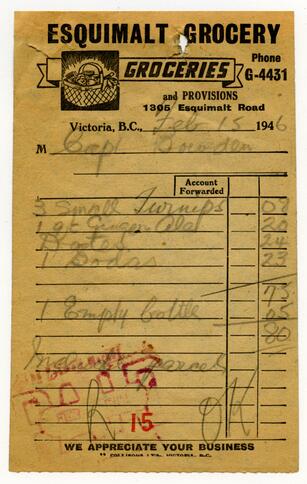 ESQUIMALT GROCERY
GROCERIES
Phone
G-4431
and PROVISIONS
1305 Esquimalt Road
Victoria, B.C., Feb 15 1946
M Capt Bowden
Account
Forwarded
3 Small Turnips 09
1 qt Ginger Ale 20
Dates 24
1 23
73
1 Empty bottle 05
80
Parcel
PAID
15
R OK
WE APPRECIATE YOUR BUSINESS
VICTORIA, B.C.